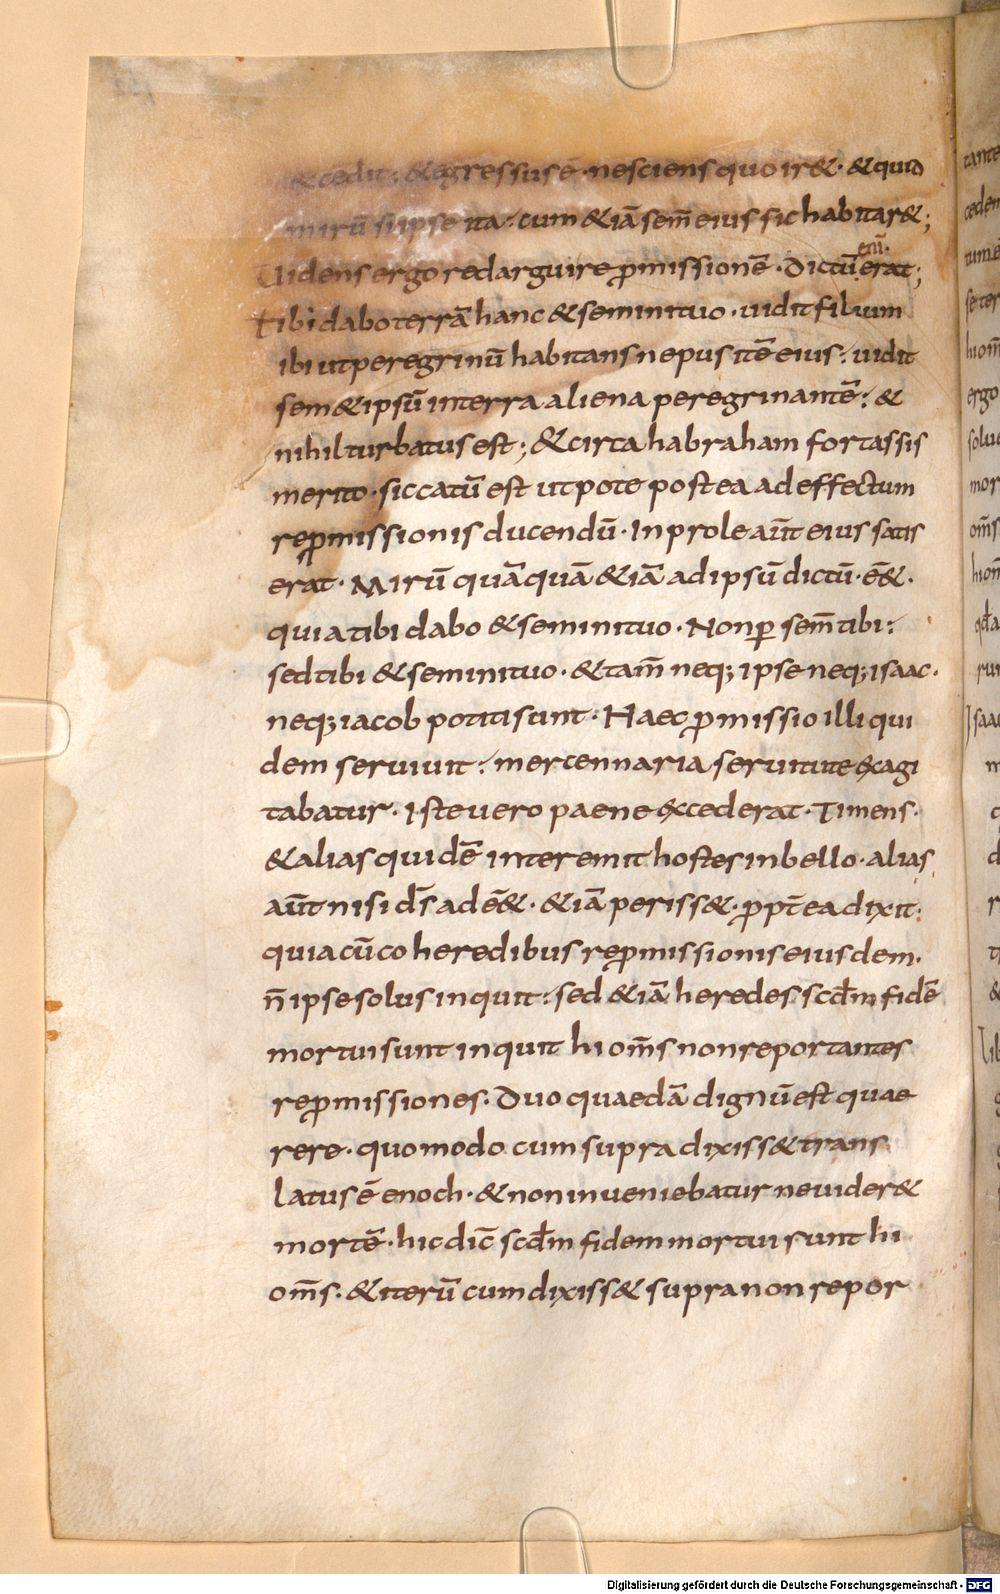 &cedit; &agressus ē· nesciens quo ir&· & quid
mirū si ipse ita: cum & iā sem̄ eius sic habitar&;
Uidens ergo redarguire ꝓmissionē· Dictū enī· erat;
tibi dabo terrā hanc & semini tuo· uidit filium
ibi ut peregrinū habitans nepus itē eius: uidit
sem & ipsū in terra aliena peregrinantē: &
nihil turbatus est; & circa habraham fortassis
merito· sic catū est utpote postea ad effectum
reꝓmissionis ducendū· In prole aūt eius satis
erat· Mirū quāquā & iā ad ipsū dictū· ē&·
quia tibi dabo & semini tuo· Non ꝑ sem̄ tibi:
sed tibi & semini tuo· & tam̄ neq; ipse neq; isaac·
neq; iacob potiti sunt· Haec ꝓmissio illi qui
dem seruiuit: mercennaria seruitute exagi
tabatur· Iste uero paene excederat· Timens·
& alias quidē interemit hostes in bello· alias
aūt nisi d̄s ad ē&· & iā periss&· ꝓpt̄ea dixit:
quia cū coheredibus reꝓmissionis eiusdem·
n̄ ipse solus inquit: sed & iā heredes scd̄m fidē
mortui sunt inquit hi om̄s non reportantes
reꝓmissiones· Duo quaedā dignū est quae
rere· quomodo cum supra dixiss& trans
latus ē enoch· & non inueniebatur ne uider&
mortē· hic dic̄ scd̄m fidem mortui sunt hi
om̄s· & iterū cum dixiss& supra non repor
Digitalisierung gefördert durch die Deutsche Forschungsgemeinschaft - DFG